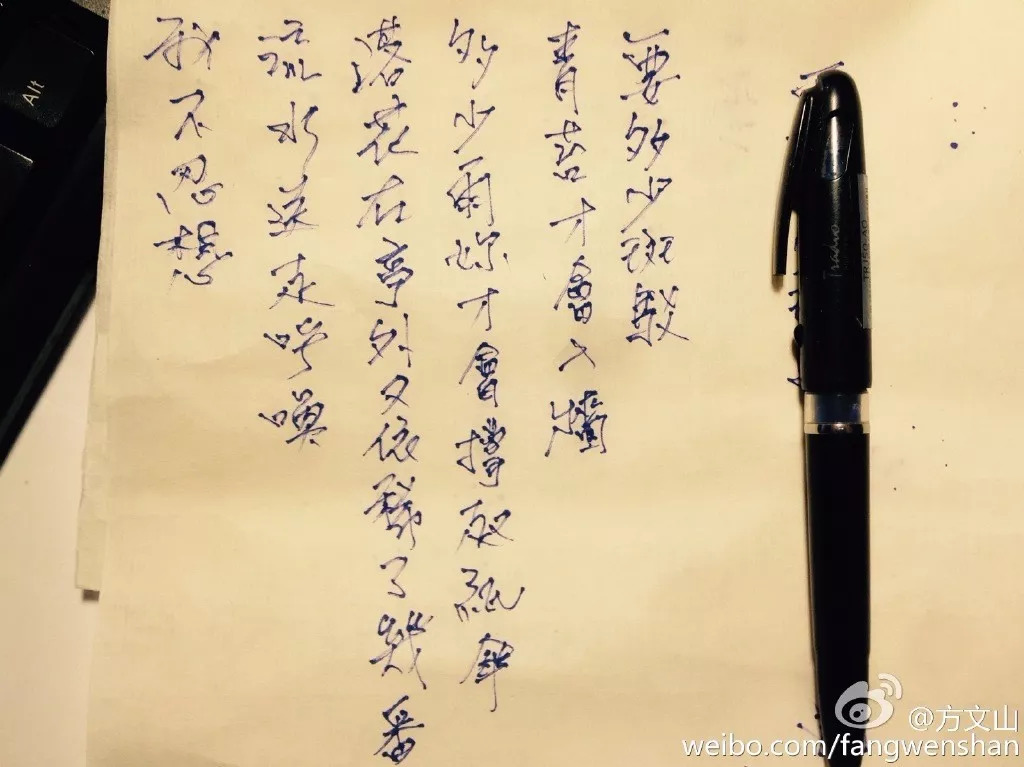 要多少斑駁
青苔才會入牆
多少雨妳才會撐起紙傘
落花在亭外又依稀了幾番
流水送走呼喚
我不忍想
Alt
@方文山
weibo.com/fangwenshan